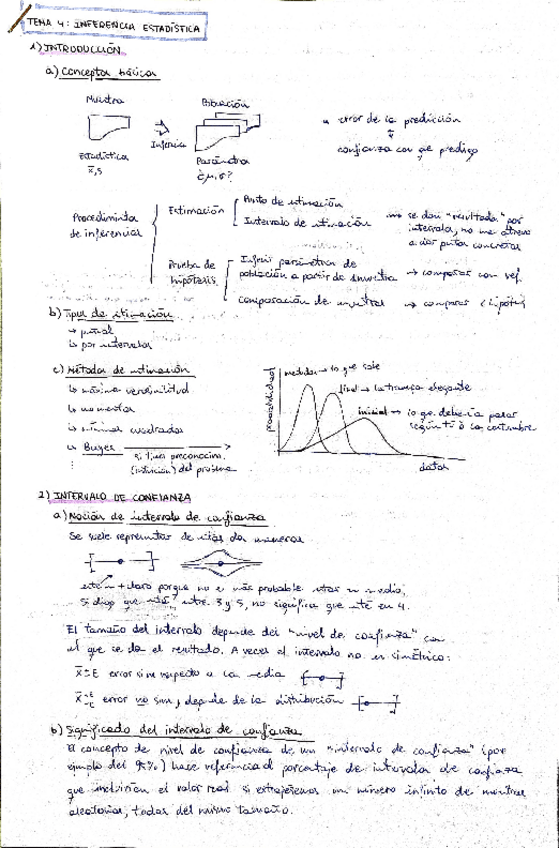 TEMA 4: INFERENCIA ESTADÍSTICA
1) INTRODUCCIÓN
a) Conceptos básicos
Muestra
Inferencia
Población
Estadísticos
x̄, s
Parámetros
¿μ, σ?
error de la predicción
confianza con que predigo
Procedimientos de inferencial
Estimación
Punto de estimación
Intervalo de estimación
se dan "resultados" por
intervalo, no me atrevo
a dar puntos concretos
Prueba de hipótesis
Inferir parámetros de
población a partir de muestra → comparar con ref.
comparación de muestras → comparar
b) Tipos de estimación
→ puntual
↳ por intervalos
c) Métodos de estimación
↳ máxima verosimilitud
↳ momentos
↳ mínimos cuadrados
↳ Bayes
si tienes preconocim.
(intuición) del problema
probabilidad
medidas → lo que sale
final → la trampa elegante
inicial → lo que debería pasar
según tú o la costumbre
datos
2) INTERVALO DE CONFIANZA
a) Noción de intervalo de confianza
Se suele representar de dos maneras
este + claro porque no es más probable estar en medio,
si digo que está entre 3 y 5, no significa que esté en 4.
El tamaño del intervalo depende del "nivel de confianza" con
el que se da el resultado. A veces el intervalo no es simétrico:
x̄ ± E error sim respecto a la media
error no sim, depende de la distribución
b) Significado del intervalo de confianza
El concepto de nivel de confianza de un "intervalo de confianza" (por
ejemplo del 95%) hace referencia al porcentaje de intervalos de confianza
que incluirían el valor real si extrajésemos un número infinito de muestras
aleatorias, todas del mismo tamaño.